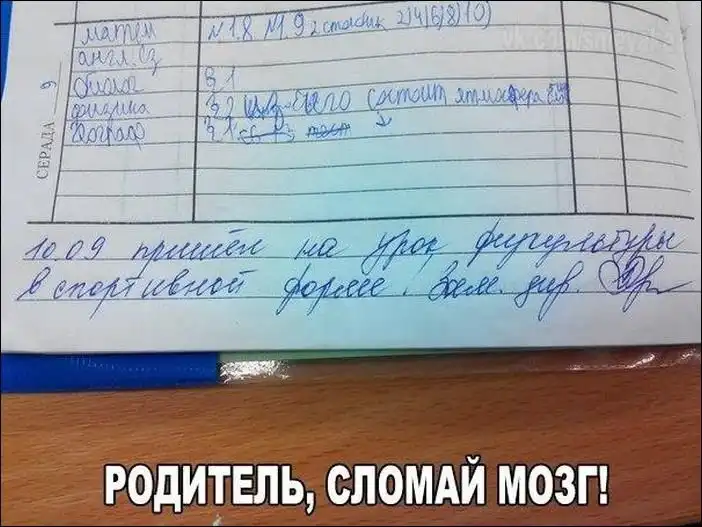 матем №1.8 №1.9 2 столбик 2)4)6)8)10)
англ. яз
биолог § 1
физика § 2 состоит атмосфера
географ § 1
СЕРАДА 9
10.09 пришёл на урок физкультуры
в спортивной форме. Зам. дир.
РОДИТЕЛЬ, СЛОМАЙ МОЗГ!